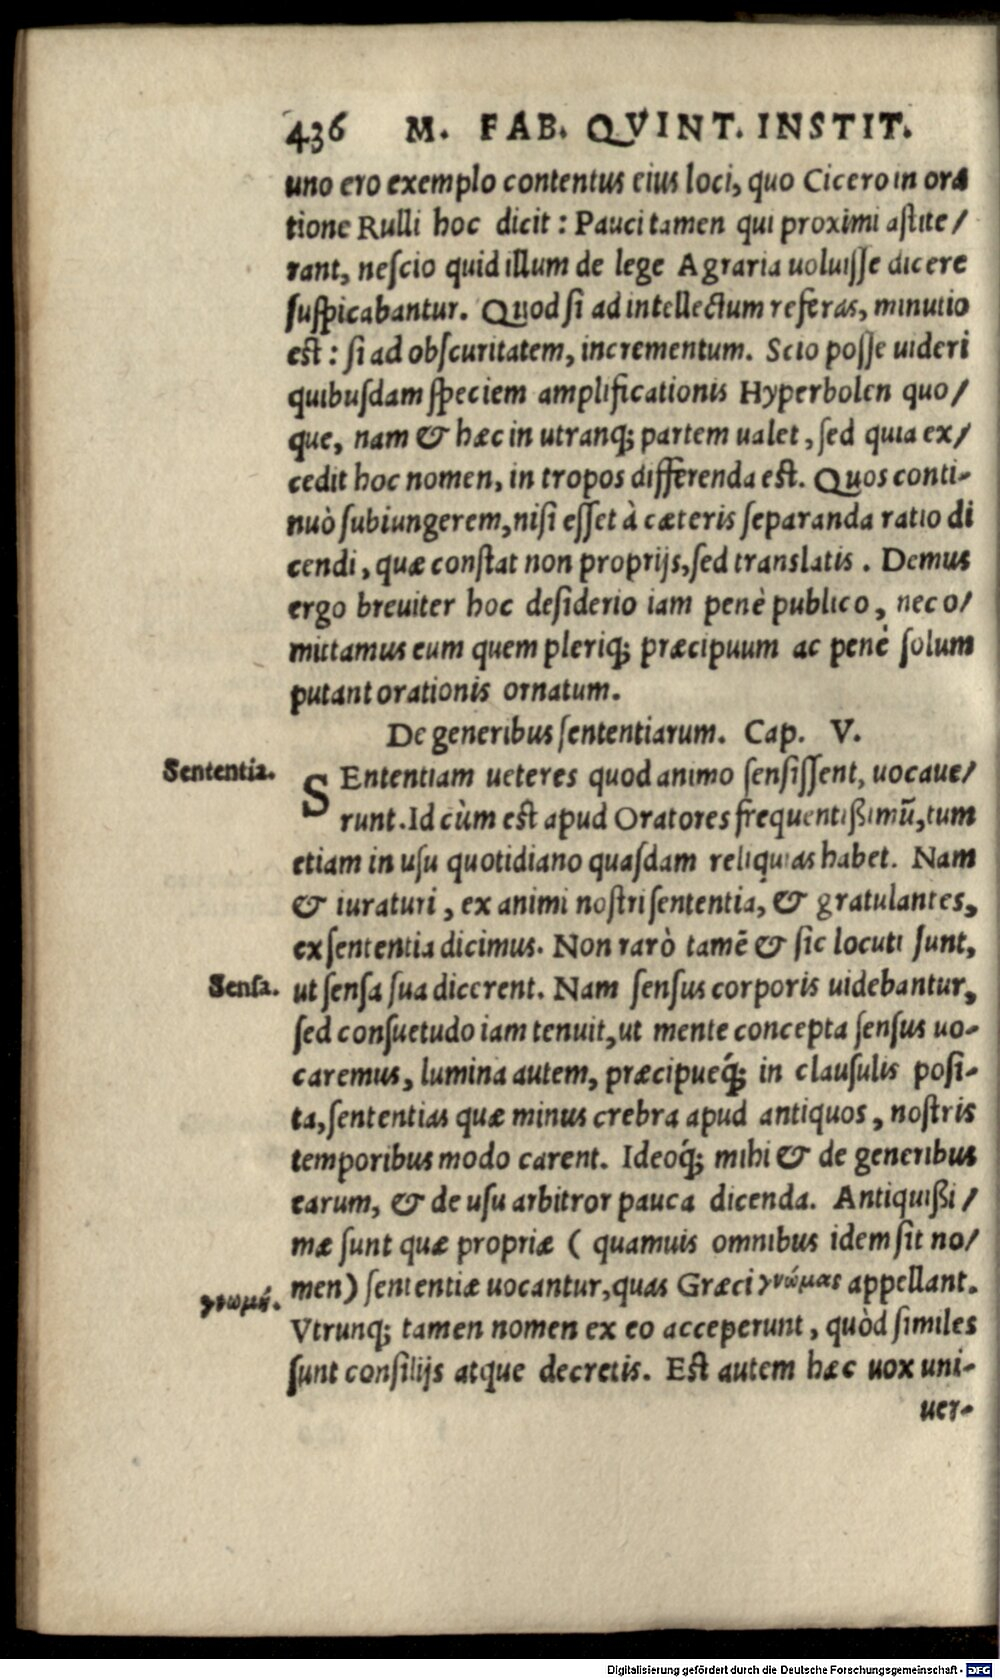 436 M. FAB. QVINT. INSTIT.
uno ero exemplo contentus eius loci, quo Cicero in ora
tione Rulli hoc dicit : Pauci tamen qui proximi astite/
rant, nescio quid illum de lege Agraria uoluisse dicere
suspicabantur. Quod si ad intellectum referas, minutio
est : si ad obscuritatem, incrementum. Scio posse uideri
quibusdam speciem amplificationis Hyperbolen quo/
que, nam & hæc in utranq; partem ualet, sed quia ex/
cedit hoc nomen, in tropos differenda est. Quos conti-
nuò subiungerem, nisi esset à cæteris separanda ratio di
cendi, quæ constat non proprijs, sed translatis. Demus
ergo breuiter hoc desiderio iam penè publico, nec o/
mittamus eum quem pleriq; præcipuum ac penè solum
putant orationis ornatum.
De generibus sententiarum. Cap. V.
Sententia.
SEntentiam ueteres quod animo sensissent, uocaue/
runt. Id cùm est apud Oratores frequentißimũ, tum
etiam in usu quotidiano quasdam reliquias habet. Nam
& iuraturi, ex animi nostri sententia, & gratulantes,
ex sententia dicimus. Non rarò tamẽ & sic locuti sunt,
Sensa. ut sensa sua dicerent. Nam sensus corporis uidebantur,
sed consuetudo iam tenuit, ut mente concepta sensus uo-
caremus, lumina autem, præcipueq́; in clausulis posi-
ta, sententias quæ minus crebra apud antiquos, nostris
temporibus modo carent. Ideoq́; mihi & de generibus
earum, & de usu arbitror pauca dicenda. Antiquißi/
mæ sunt quæ propriæ ( quamuis omnibus idem sit no/
γνωμή. men) sententiæ uocantur, quas Græci γνώμας appellant.
Vtrunq; tamen nomen ex eo acceperunt, quòd similes
sunt consilijs atque decretis. Est autem hæc uox uni-
uer-
Digitalisierung gefördert durch die Deutsche Forschungsgemeinschaft - DFG